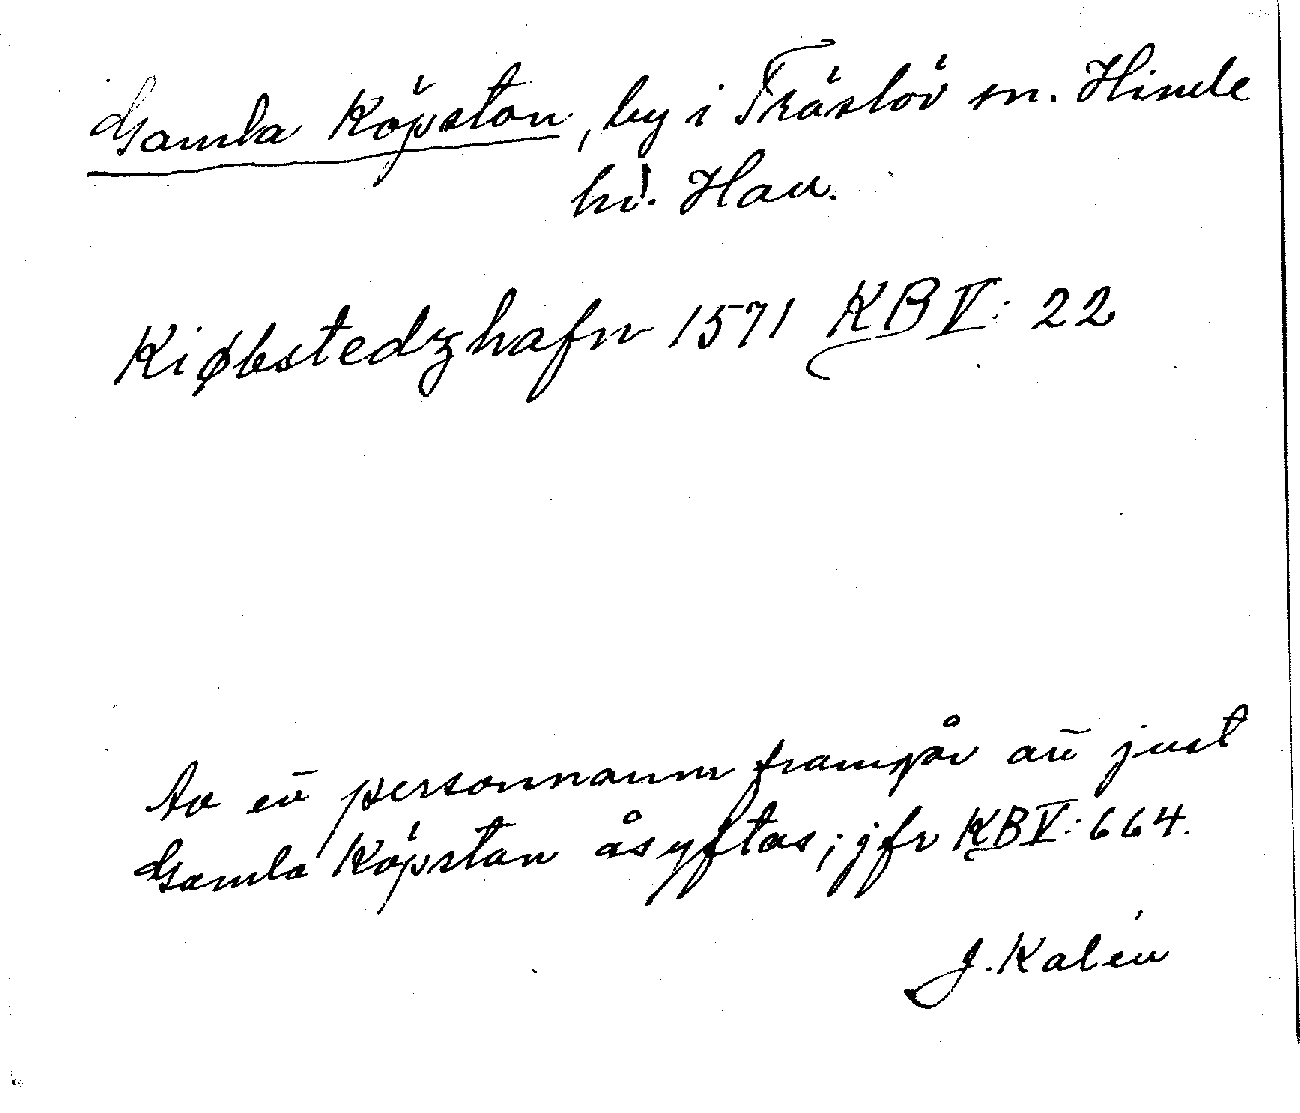 Gamla Köpstan, by i Träslöv sn. Himle
hd. Hall.
Kiøbstedzhafn 1571 KB V: 22
Av ett personnamn framgår att just
Gamla Köpstan åsyftas; jfr KB V: 664.
J. Kalén